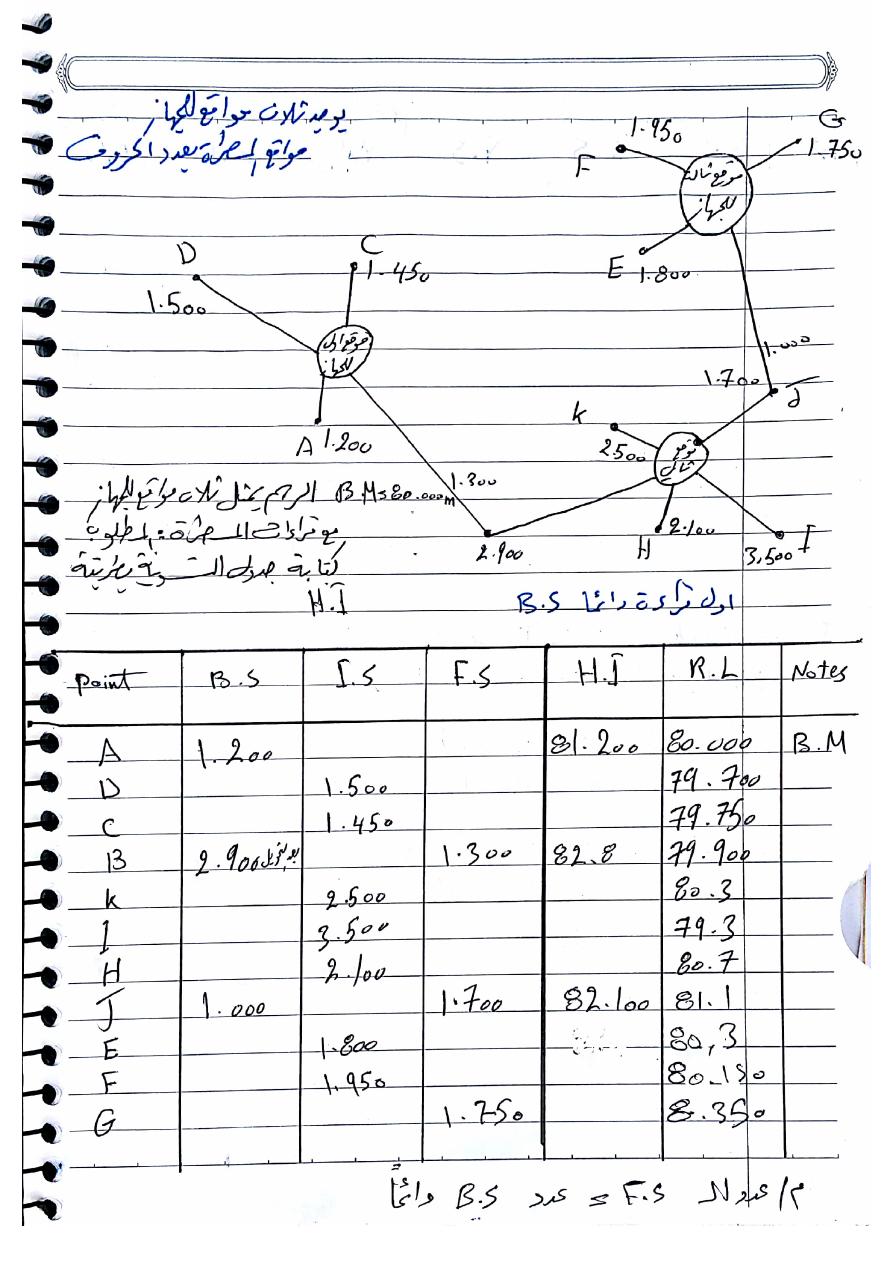 يوجد ثلاث مواقع للجهاز
مواقع المسطرة بعدد الحروف
1.950
G
1.750
F
موقع ثالث
للجهاز
E 1.800
D
C
1.450
1.500
موقع اول
للجهاز
1.000
1.700
J
K
2.500
موقع
ثاني
A 1.200
1.300
2.900
H 2.100
3.500 I
B.M=80.000m الرسم يمثل ثلاث مواقع للجهاز
مع قراءات المسطرة: المطلوب
كتابة جدول التسوية بطريقة
H.I
اول قراءة دائما B.S
Point B.S I.S F.S H.I R.L Notes
A 1.200 81.200 80.000 B.M
D 1.500 79.700
C 1.450 79.750
B 2.900 1.300 82.8 79.900
K 2.500 80.3
I 3.500 79.3
H 2.100 80.7
J 1.000 1.700 82.100 81.1
E 1.800 80,3
F 1.950 80.150
G 1.750 8.350
م/ عدد الـ F.S = عدد B.S دائماً